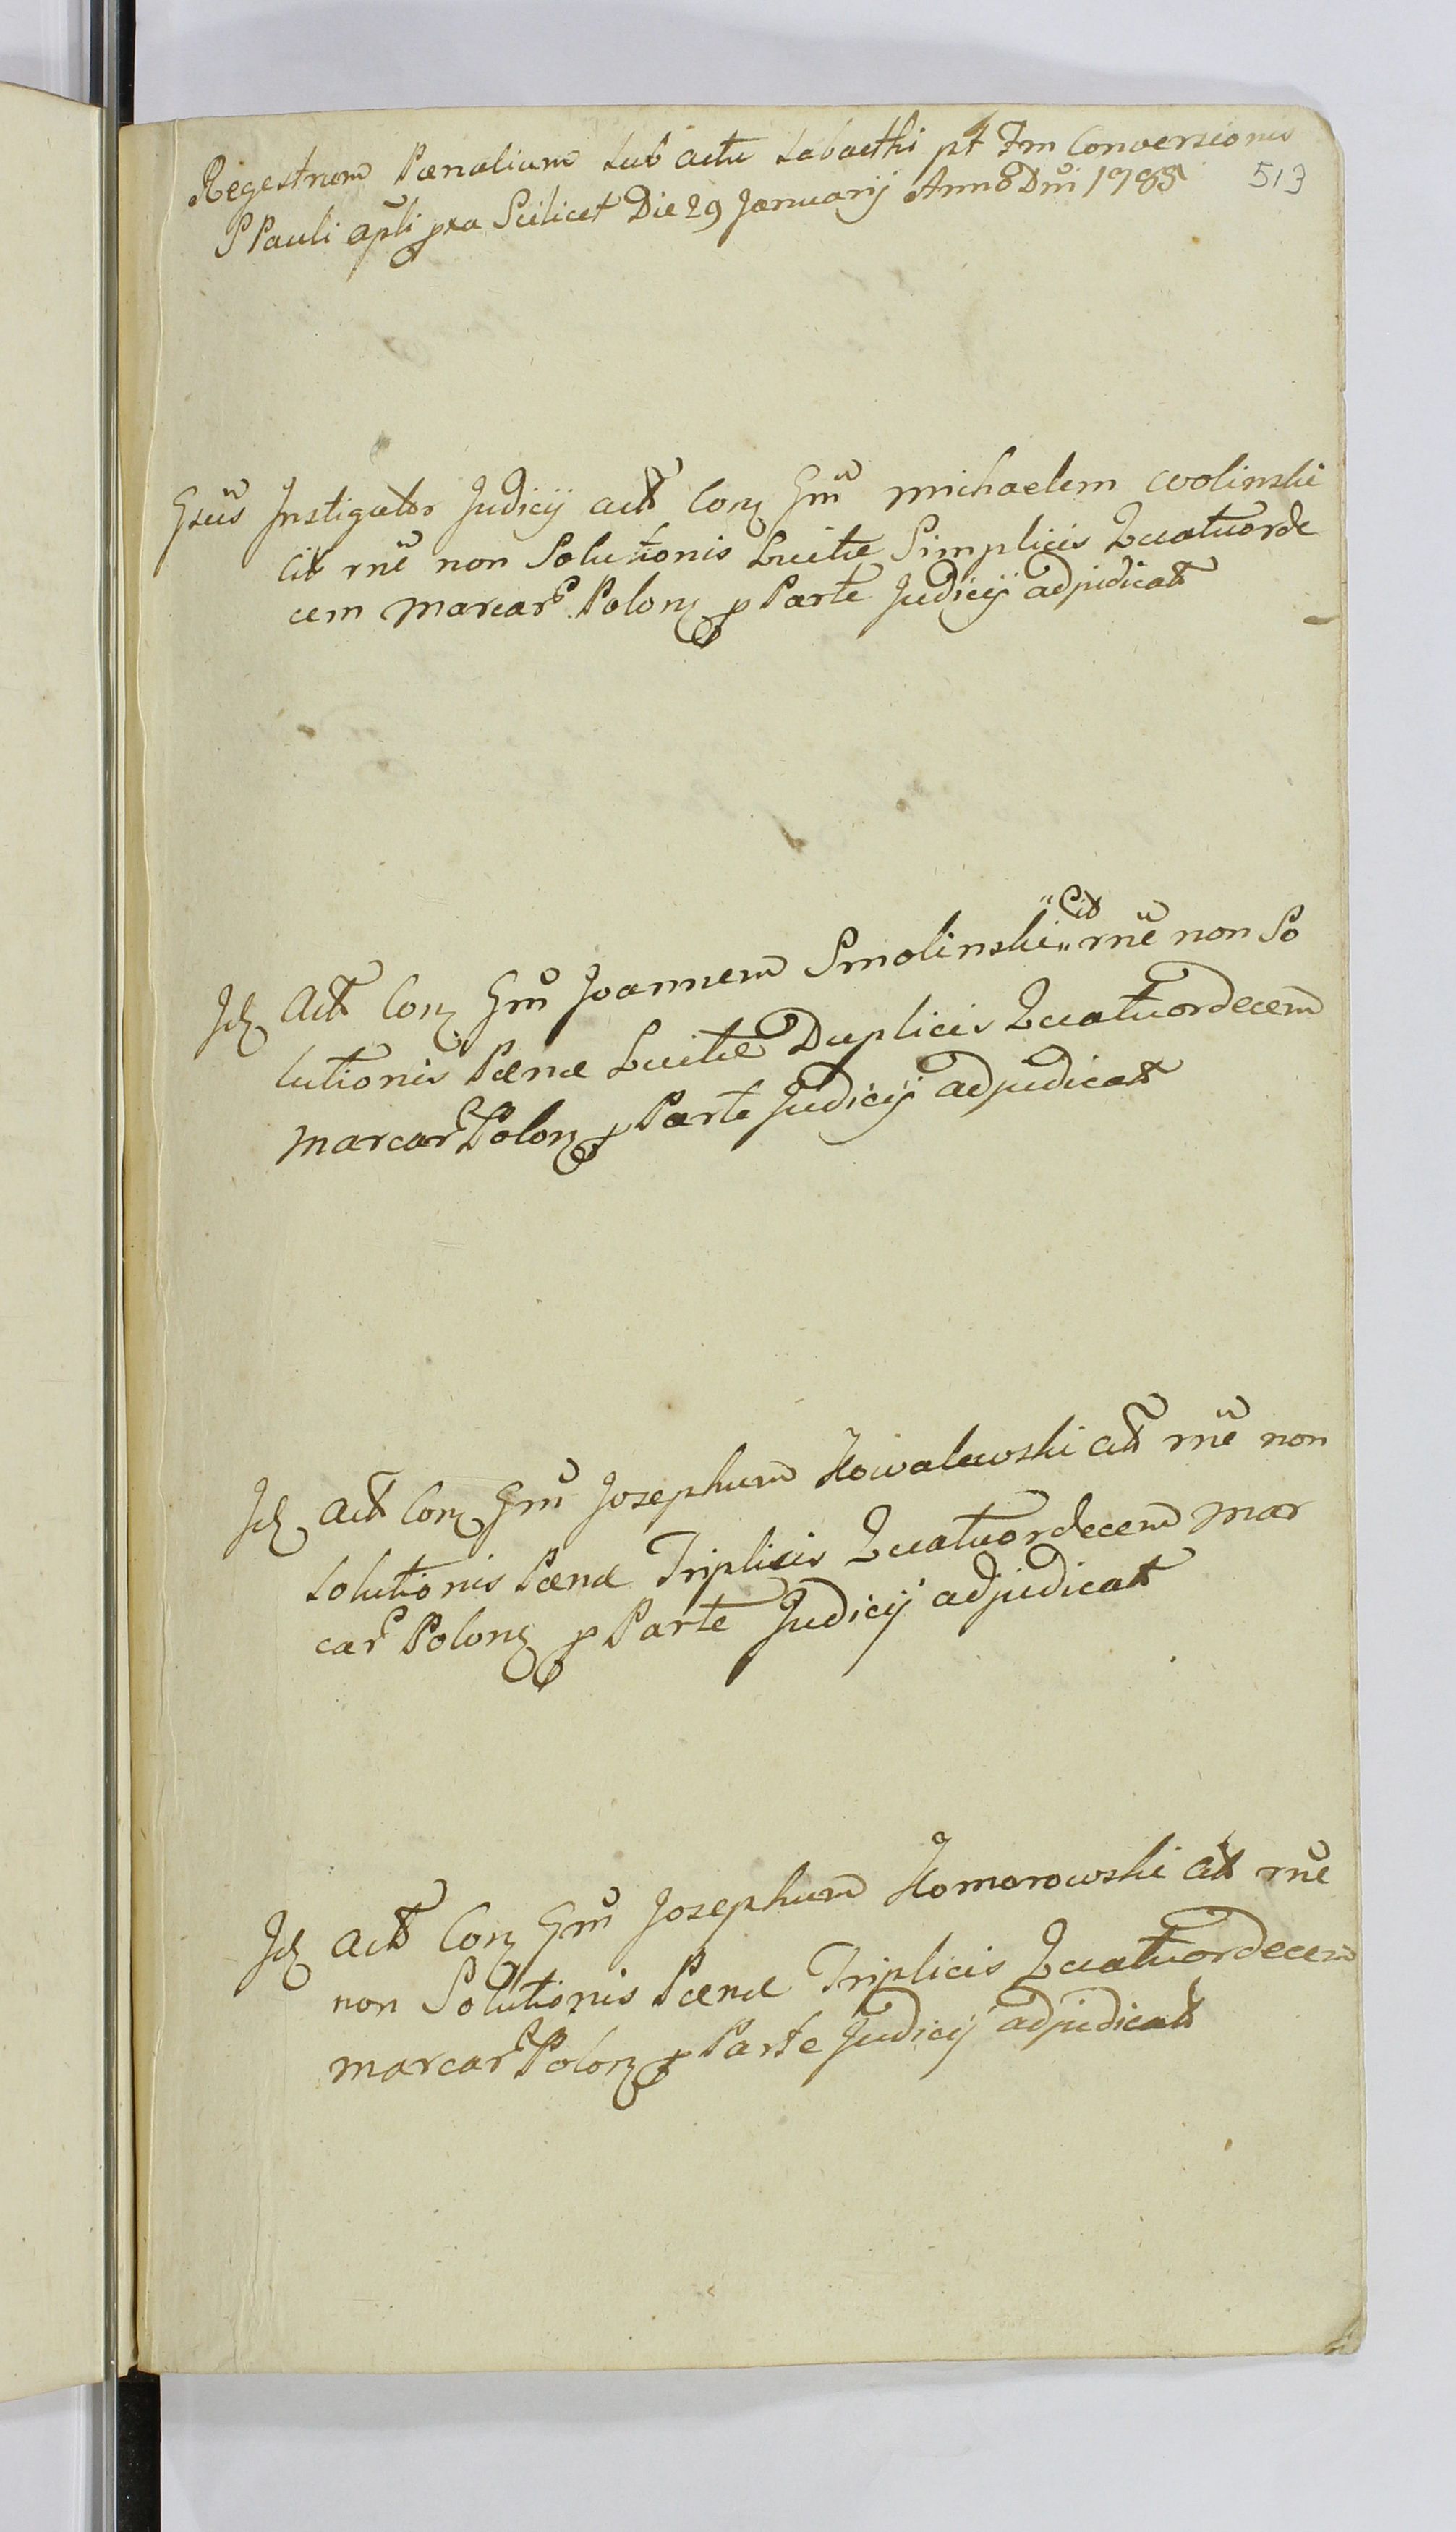 Regestrum Pœnalium Sub actu Sabathi pt Fm Conversionis
S Pauli apli pxa Scilicet Die 29 Januarij Anno Dni 1785
513
Gsūs Instigator Judicij actt Conz Gnū Michaelem Wolinski
citt rnē non Solutionis Luitæ Simplicis Quatuorde
cem marcar Polonz p Parte Judicij adjudicatt
Jdz Actt Conz Gnū Joannem Smolinski " Citt " rnē non So
lutionis Pœnæ Luitæ Duplicis Quatuordecem
marcar Polonz p Parte Judicij adjudicatt
Jdz actt Conz Gnū Josephum Kowalewski citt rnē non
Solutionis Pœnæ Triplicis Quatuordecem mar
car Polonz p Parte Judicij adjudicatt
Jdz actt Conz Gnū Josephum Komorowski citt rnē
non Solutionis Pœnæ Triplicis Quatuordecem
marcar Polonz p Parte Judicij adjudicatt